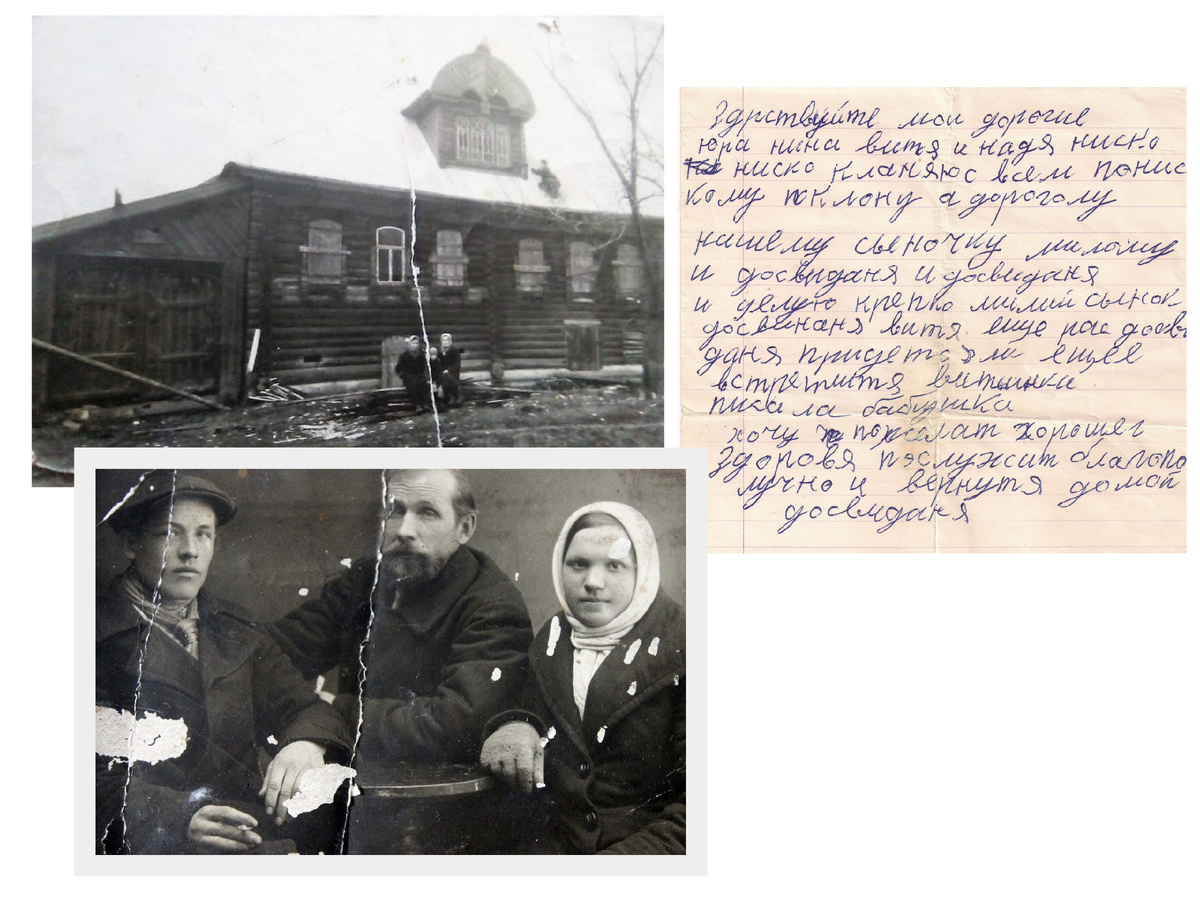 Здрствуйте мои дорогие
юра нина витя и надя ниско
ниско кланяюс всем понис
кому поклону а дорогому
нашему сыночку милому
и досвиданя и досвиданя
и целую крепко милий сынок
досвинаня витя еще рас досви
даня придетса ли ещее
встретитя витинка
писала бабушка
хочу пожилат хорошег
Здоровя послужит благопо
лучно и вернутя домой
досвиданя